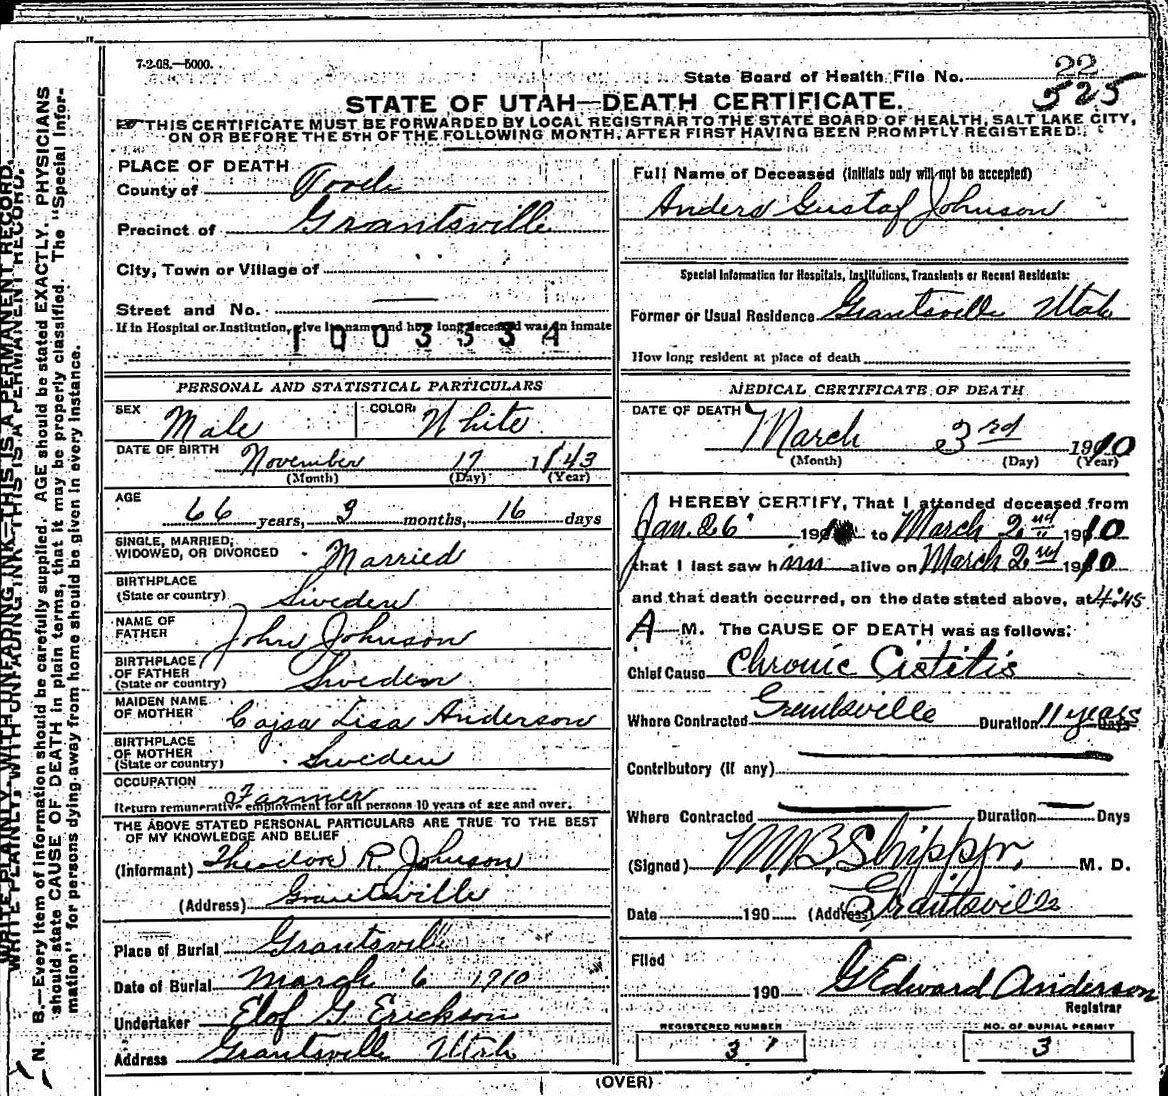 7-2-08.—5000.
State Board of Health File No. 22
525
STATE OF UTAH—DEATH CERTIFICATE.
THIS CERTIFICATE MUST BE FORWARDED BY LOCAL REGISTRAR TO THE STATE BOARD OF HEALTH, SALT LAKE CITY,
ON OR BEFORE THE 5TH OF THE FOLLOWING MONTH, AFTER FIRST HAVING BEEN PROMPTLY REGISTERED.
WRITE PLAINLY WITH UNFADING INK—THIS IS A PERMANENT RECORD.
N. B.—Every item of information should be carefully supplied. AGE should be stated EXACTLY. PHYSICIANS
should state CAUSE OF DEATH in plain terms, that it may be properly classified. The "Special Infor-
mation" for persons dying away from home should be given in every instance.
PLACE OF DEATH
County of Tooele
Precinct of Grantsville
City, Town or Village of
Street and No.
If in Hospital or Institution, give its name and how long deceased was an inmate
1003334
PERSONAL AND STATISTICAL PARTICULARS
SEX Male COLOR White
DATE OF BIRTH November 17 1843
(Month) (Day) (Year)
AGE 66 years, 3 months, 16 days
SINGLE, MARRIED,
WIDOWED, OR DIVORCED Married
BIRTHPLACE
(State or country) Sweden
NAME OF
FATHER John Johnson
BIRTHPLACE
OF FATHER
(State or country) Sweden
MAIDEN NAME
OF MOTHER Cajsa Lisa Anderson
BIRTHPLACE
OF MOTHER
(State or country) Sweden
OCCUPATION Farmer
Return remunerative employment for all persons 10 years of age and over.
THE ABOVE STATED PERSONAL PARTICULARS ARE TRUE TO THE BEST
OF MY KNOWLEDGE AND BELIEF
(Informant) Theodore R Johnson
(Address) Grantsville
Place of Burial Grantsville
Date of Burial March 6 1910
Undertaker Elof G Erickson
Address Grantsville Utah
Full Name of Deceased (Initials only will not be accepted)
Anders Gustaf Johnson
Special Information for Hospitals, Institutions, Transients or Recent Residents:
Former or Usual Residence Grantsville Utah
How long resident at place of death
MEDICAL CERTIFICATE OF DEATH
DATE OF DEATH March 3rd 1910
(Month) (Day) (Year)
I HEREBY CERTIFY, That I attended deceased from
Jan. 26 1910 to March 2nd 1910
that I last saw him alive on March 2nd 1910
and that death occurred, on the date stated above, at 4:45
A M. The CAUSE OF DEATH was as follows:
Chief Cause Chronic Cistitis
Where Contracted Grantsville Duration 11 years Days
Contributory (if any)
Where Contracted Duration Days
(Signed) M. D.
Date 190 (Address) Grantsville
Filed
190 G Edward Anderson
Registrar
REGISTERED NUMBER NO. OF BURIAL PERMIT
3 3
(OVER)